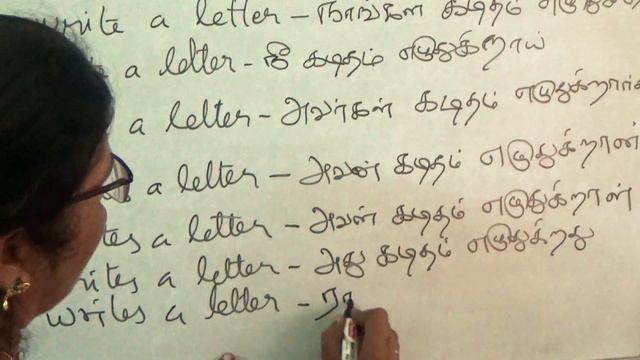 write a letter - நாங்கள் கடிதம்
a letter - நீ கடிதம் எழுதுகிறாய்
a letter - அவர்கள் கடிதம் எழுதுகிறார்க
a letter - அவன் கடிதம் எழுதுகிறான்
tes a letter - அவள் கடிதம் எழுதுகிறாள்
rites a letter - அது கடிதம் எழுதுகிறது
writes a letter - ரா